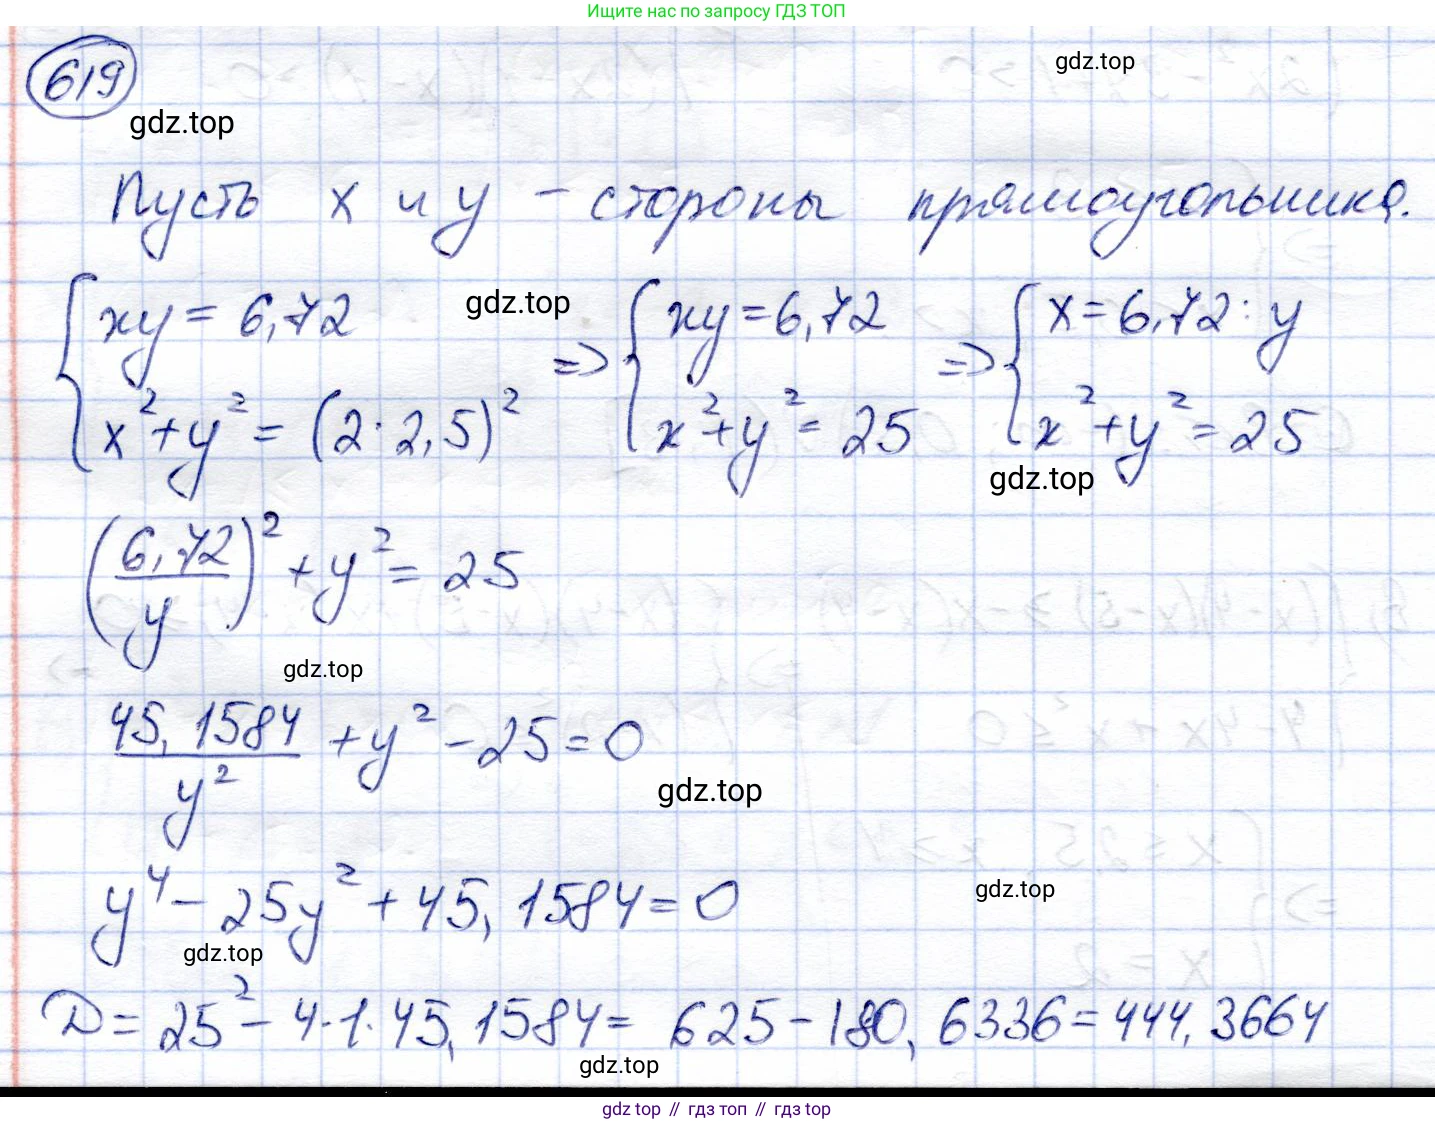 Ищите нас по запросу ГДЗ ТОП
619
gdz.top
gdz.top
Пусть x и y – стороны прямоугольника.
{ xy = 6,72 gdz.top => { xy = 6,72 => { x = 6,72 : y
x² + y² = (2 · 2,5)² x² + y² = 25 x² + y² = 25
gdz.top
(6,72 / y)² + y² = 25
gdz.top
45,1584 / y² + y² - 25 = 0
gdz.top
y⁴ - 25y² + 45,1584 = 0
gdz.top
gdz.top
D = 25² - 4 · 1 · 45,1584 = 625 - 180,6336 = 444,3664
gdz.top
gdz top // гдз топ // гдз top